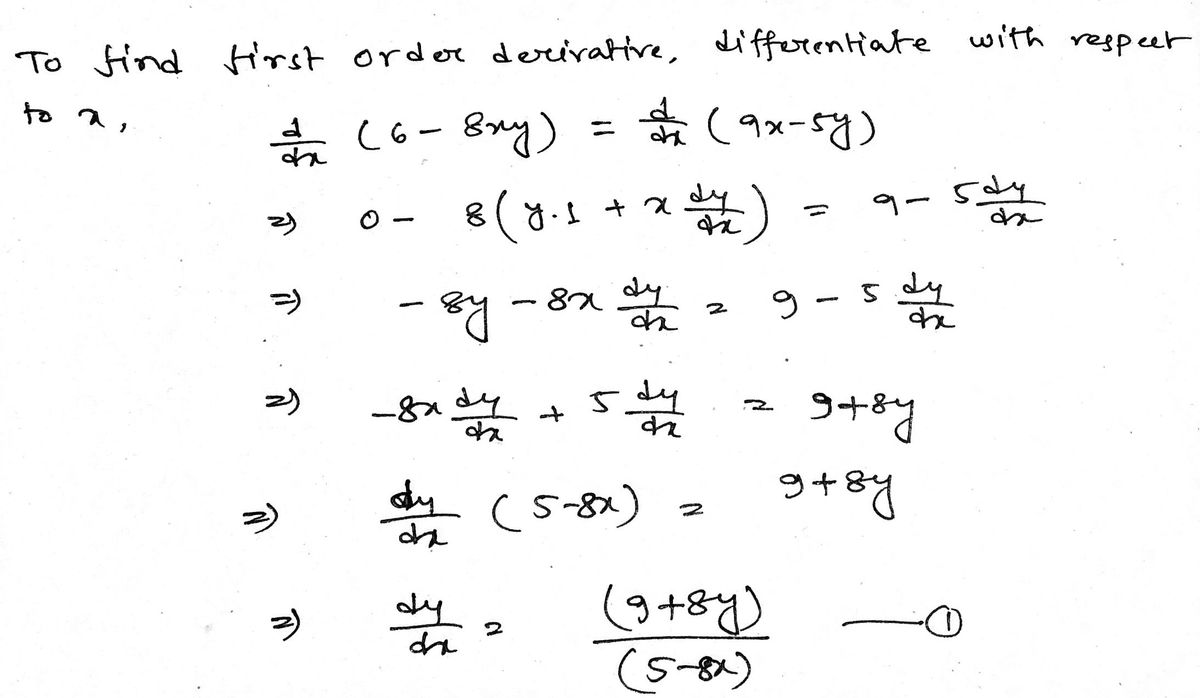 To find first order derivative, differentiate with respect
to x,
d/dx (6 - 8xy) = d/dx (9x-5y)
⇒ 0 - 8(y.1 + x dy/dx) = 9 - 5 dy/dx
⇒ -8y - 8x dy/dx = 9 - 5 dy/dx
⇒ -8x dy/dx + 5 dy/dx = 9+8y
⇒ dy/dx (5-8x) = 9+8y
⇒ dy/dx = (9+8y)/(5-8x) —①